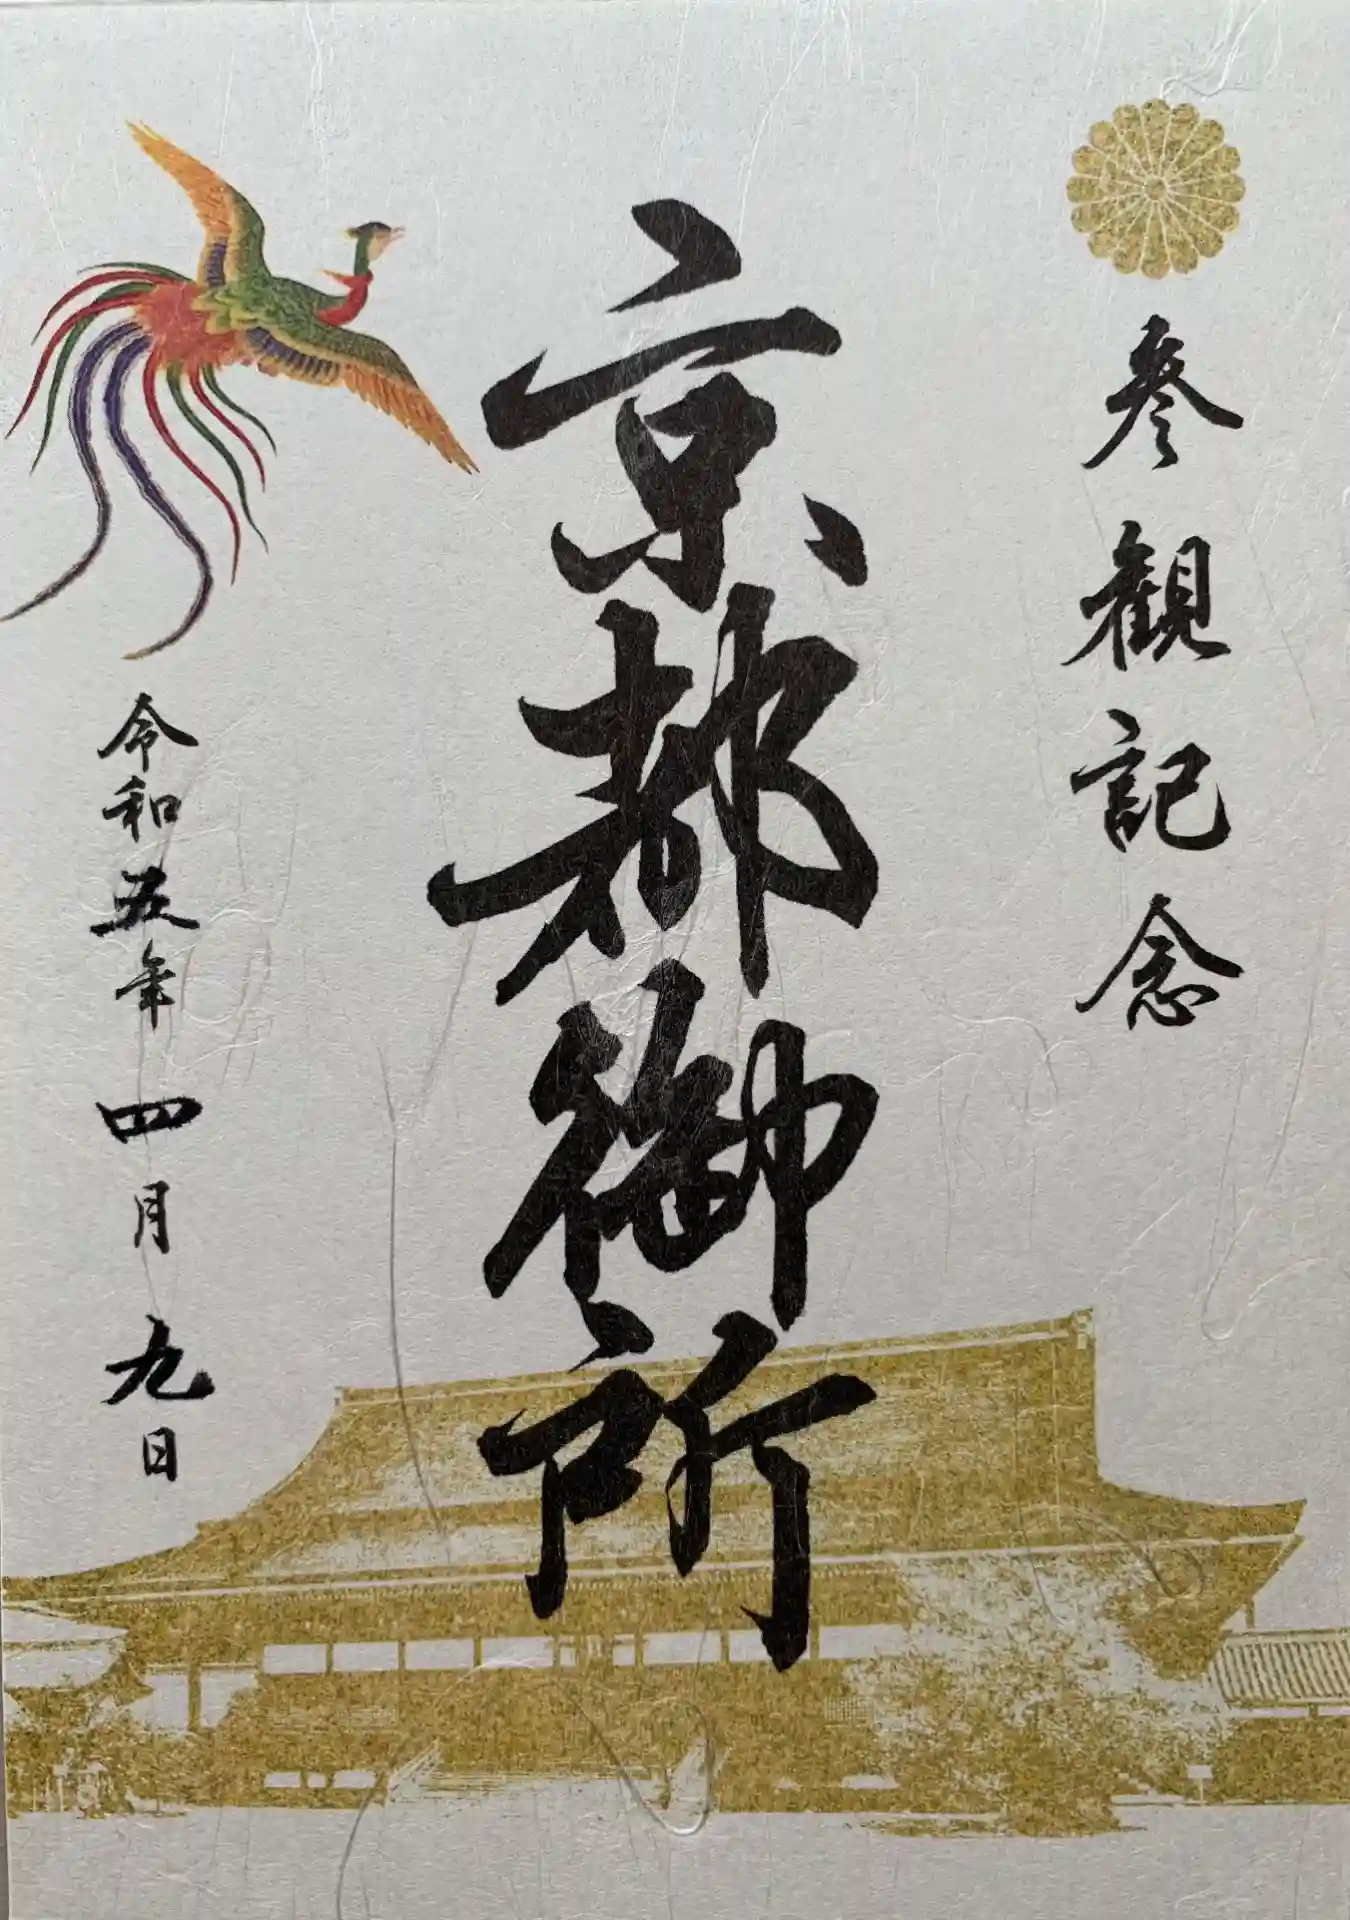 参観記念
京都御所
令和五年四月九日